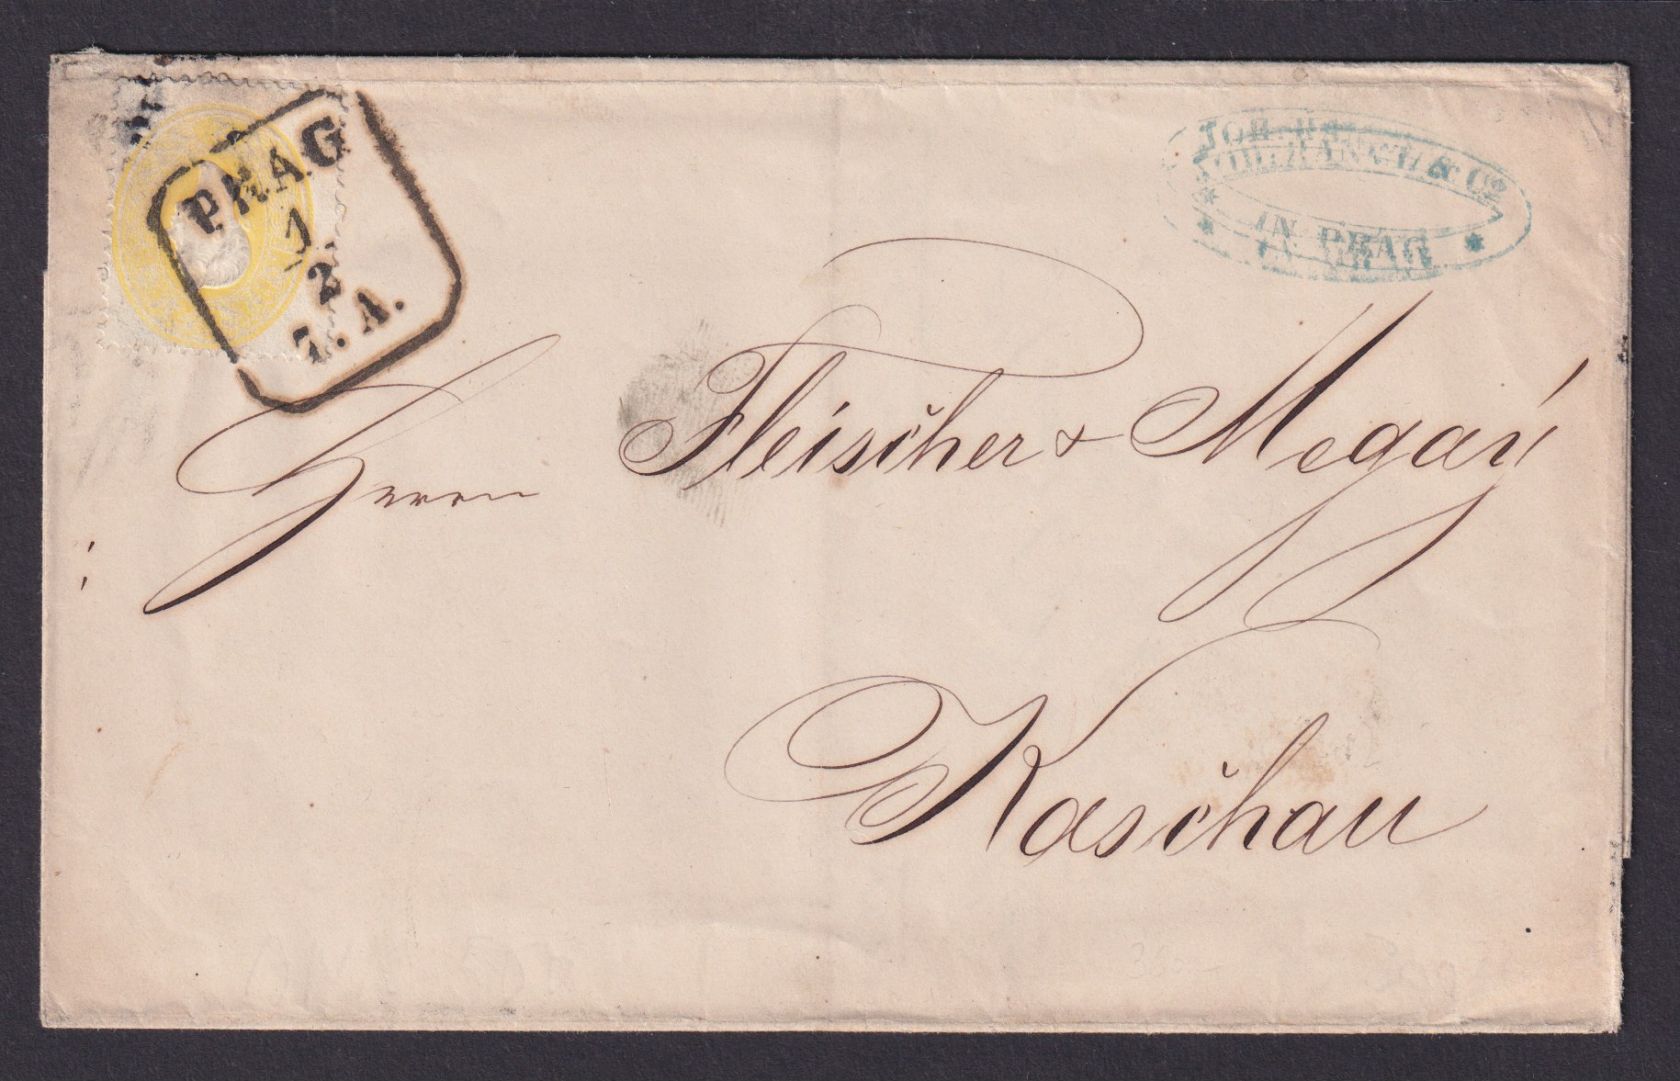 PRAG
1
2
7. A.
JOH.
& Co
IN PRAG
Herrn Fleischer & Megay
Kaschau